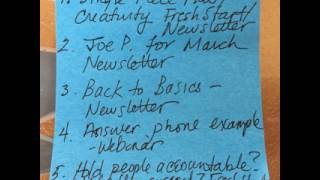 1. Single Piece Flow/
Creativity Fresh Start/
Newsletter
2. Joe P. for March
Newsletter
3. Back to Basics -
Newsletter
4. Answer phone example
- Webinar
5. Hold people accountable?